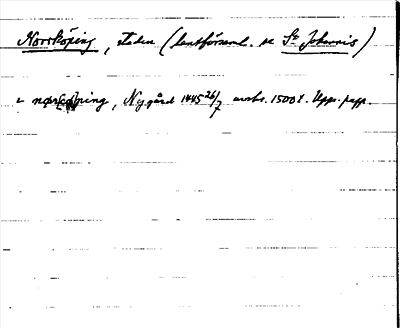 Norrköping, staden (landsförsaml. se St Johannis)
i norkøping, Nygård 1445 26/7 avskr. 1500 t. Upps. papp.